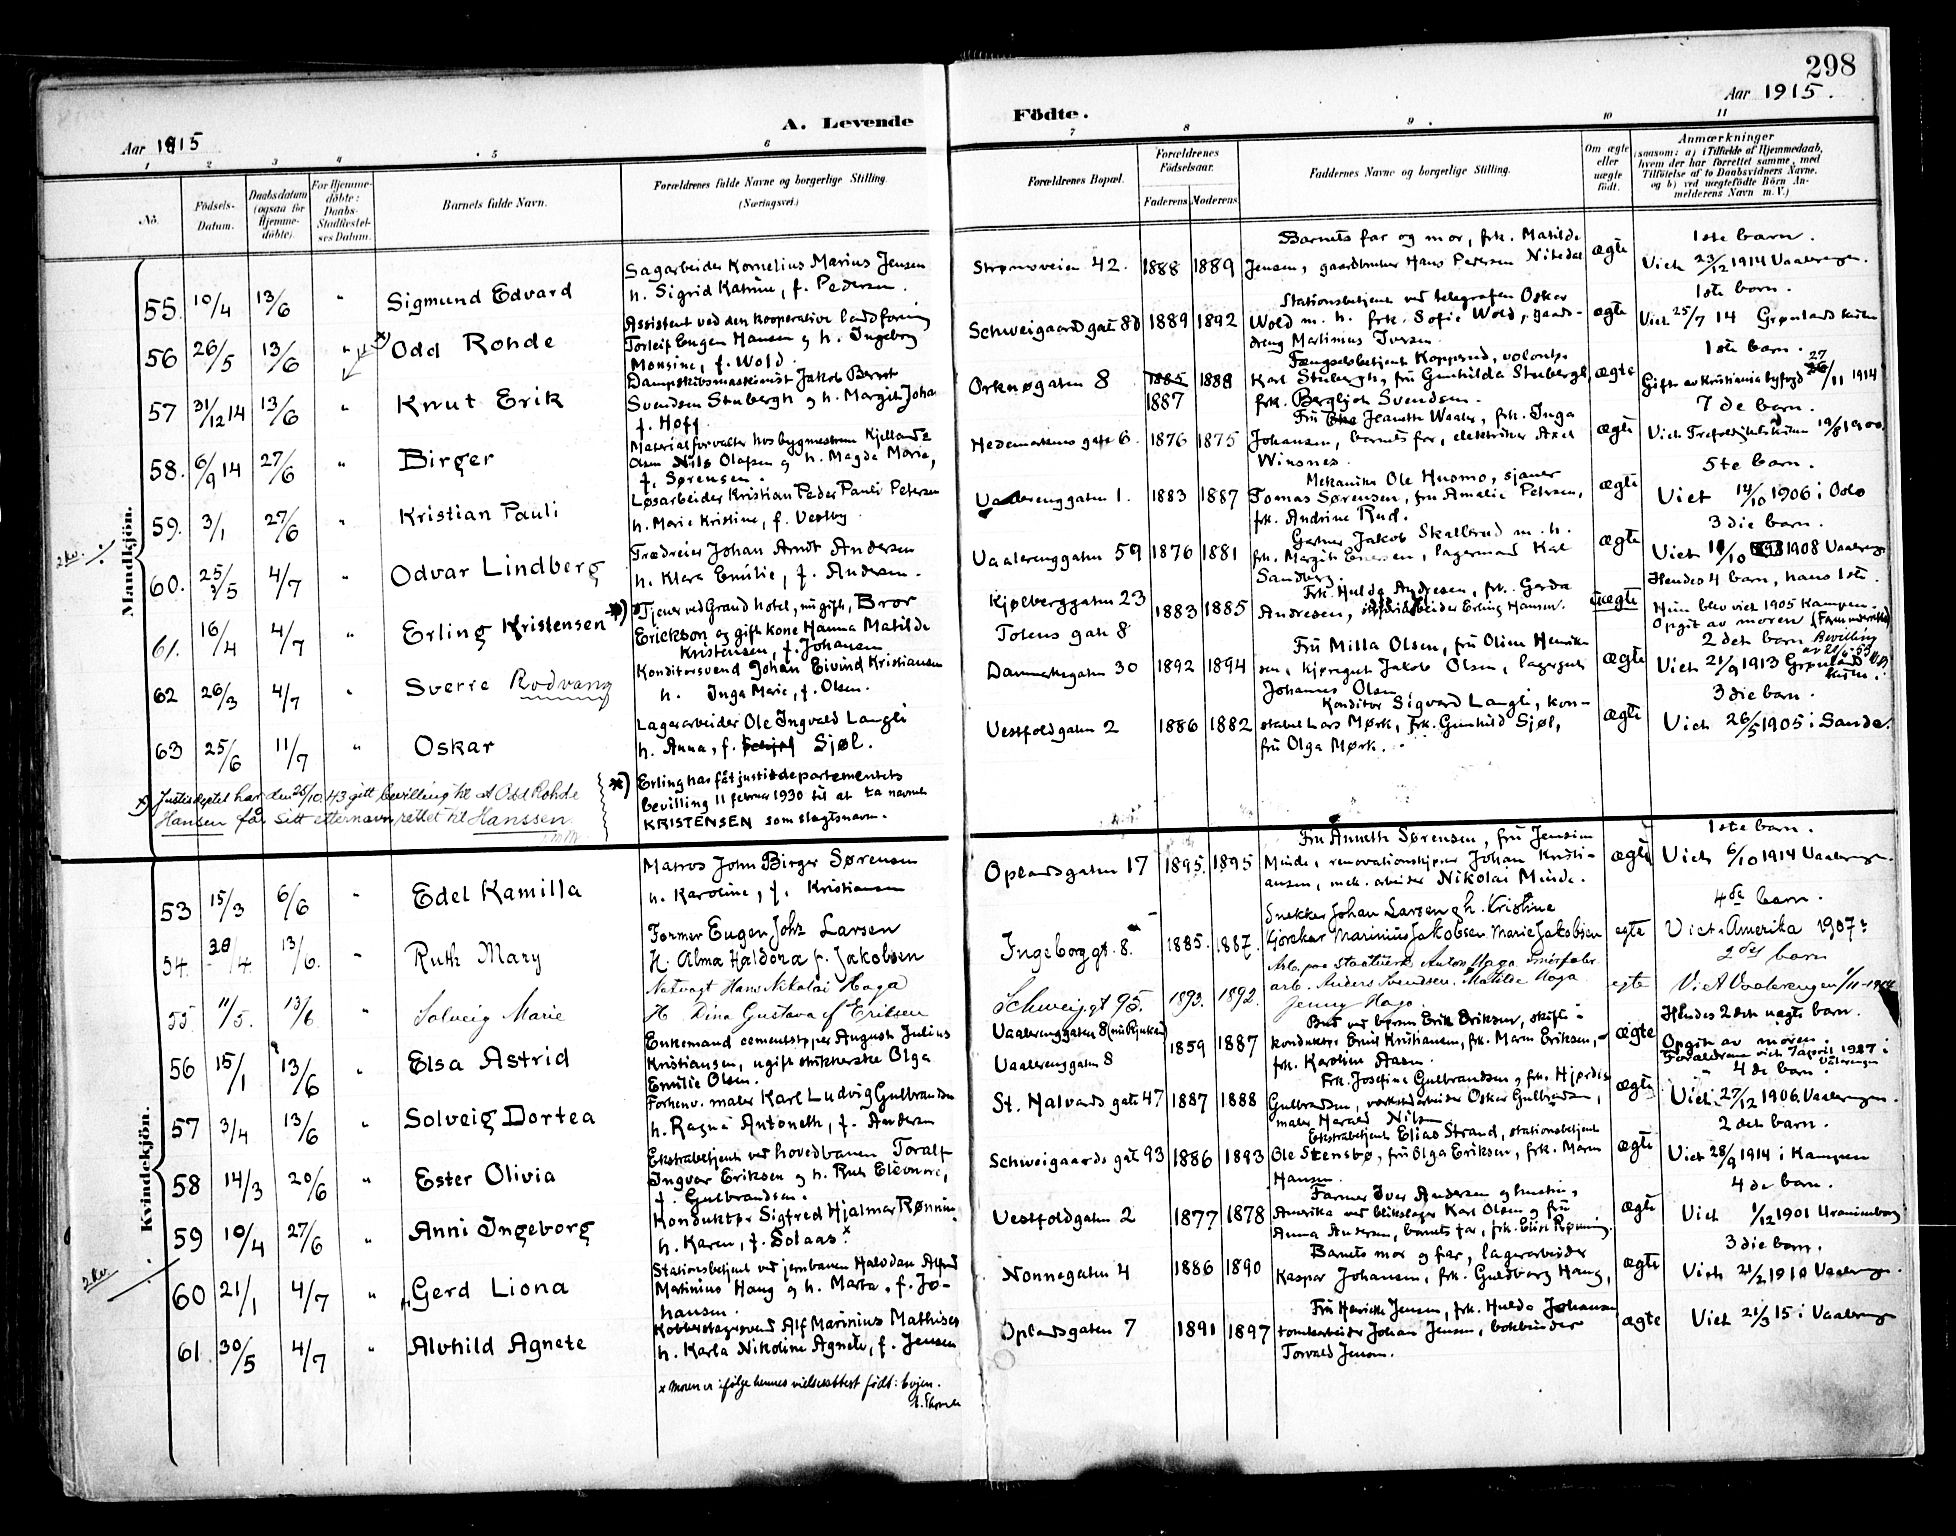 298
Aar 1915.
A. Levende Födte.
Aar 1915
1 2 3 4 5 6 7 8 9 10 11
No.
Födsels-Datum.
Daabsdatum (ogsaa for Hjemme-döbte).
For Hjemme-döbte: Daabs-Stadfæstel-ses Datum.
Barnets fulde Navn.
Forældrenes fulde Navne og borgerlige Stilling. (Næringsvei.)
Forældrenes Bopæl.
Forældrenes Födselsaar.
Faderens Moderens
Faddernes Navne og borgerlige Stilling.
Om ægte eller uægte födt.
Anmærkninger
(saasom: a) i Tilfælde af Hjemmedaab,
hvem der har forrettet samme, med
Tilföielse af to Daabsvidners Navne,
og b) ved uægtefödte Börn An-
melderens Navn m. V.)
Mandkjön.
55. 10/4 13/6 " Sigmund Edvard
Sagarbeider Kornelius Marius Jensen
h. Sigrid Katrine, f. Pedersen.
Strømsveien 42. 1888 1889
Barnets far og mor, frk. Matilde
Jensen, gaardbruker Hans Pedersen Nitedal
ægte
1ste barn.
Viet 23/12 1914 Vaalerengen.
56 26/5 13/6 " Odd Rohde
Assistent ved den kooperative landforening
Torleif Eugen Hansen og h. Ingeborg
Monsine, f. Wold.
Schweigaards gate 80 1889 1892
Stationsbetjent ved telegrafen Oskar
Wold m. h. frk. Sofie Wold, gaards-
dreng Martinius Iversen
ægte
1ste barn.
Viet 25/7 14 Grønlands kirke
57 31/12 14 13/6 " Knut Erik
Dampskibsmaskinist Jakob Berent
Svendsen Stubergh og h. Margit Joha
f. Hoff
Orknøgaten 8 1885 1887 1888
Fængselsbetjent Kopperud, volontør
Karl Stubergh, fru Gunhilda Stubergh,
frk. Bergljot Svendsen.
ægte
1ste barn.
Gifte av Kristiania byfogd 27/11 1914
58. 6/9 14 27/6 " Birger
Materialforvalter hos bygmestrene Kjelland &
Olsen Nils Olafsen og h. Magda Marie,
f. Sørensen.
Hedemarkens gate 6. 1876 1875
Fru Jeanette Waaler, frk. Inga
Johansen, barnets far, elektriker Axel
Winsnes.
ægte
7de barn.
Viet Trefoldighetskirken 19/8 1900
59. 3/1 27/6 " Kristian Pauli
Løsarbeider Kristian Peder Pauli Petersen
h. Marie Kristine, f. Vestby.
Vaalerenggaten 1. 1883 1887
Mekaniker Ole Husmo, sjauer
Tomas Sørensen, fru Amalie Petersen,
frk. Andrine Rud.
ægte
5te barn.
Viet 14/10 1906 i Oslo
2 kv.
60. 25/5 4/7 " Odvar Lindberg
Trædreier Johan Arndt Andersen
h. Klara Emilie, f. Andersen.
Vaalerenggaten 59 1876 1881
Gartner Jakob Skallerud m. h.
frk. Margit Enersen, lagermand Karl
Sandberg.
ægte
3die barn.
Viet 11/10 1908 Vaalerengen
61. 16/4 4/7 " Erling Kristensen *)
Tjener ved Grand hotel, nu gift, Bror
Erickson og gifte kone Hanna Matilde
Kristensen, f. Johansen
Kjølberggaten 23
Totens gate 8
1883 1885
Frk. Hulda Andresen, frk. Gerda
Andresen, Erling Hansen.
uægte
Hendes 4 barn, hans 1ste.
Hun blev viet 1905 Kampen.
Opgit av moren
62 26/3 4/7 " Sverre Rodvang
Konditorsvend Johan Eivind Kristiansen
h. Inga Marie, f. Olsen.
Danmarksgaten 30 1892 1894
Fru Milla Olsen, fru Oline Henrik-
sen, kjøregut Jakob Olsen, lagergut
Johannes Olsen
ægte
2det barn Bevilling
Viet 21/9 1913 Grønland kirke.
63 25/6 11/7 " Oskar
Lagerarbeider Ole Ingvald Langli
h. Anna, f. Sjøl.
Vestfoldgaten 2 1886 1882
Konditor Sigvard Langli, kon-
stabel Lars Mørk, frk. Gunhild Sjøl,
fru Olga Mørk.
ægte
3die barn.
Viet 26/5 1905 i Sande.
x) Justisdeptet har den 25/10 43 gitt bevilling til at Odd Rohde
Hansen får sitt etternavn rettet til Hanssen.
*) Erling har fåt justisdepartementets
bevilling 11 februar 1930 til at ta navnet
KRISTENSEN som slagtsnavn.
Kvindekjön.
53 15/3 6/6 " Edel Kamilla
Matros John Birger Sørensen
h. Karoline, f. Kristiansen
Oplandsgaten 17 1895. 1895
Fru Anneth Sørensen, fru Jensine
Minde, renovationskjører Johan Kristi-
ansen, mek. arbeider Nikolai Minde.
ægte
1ste barn.
Viet 6/10 1914 Vaalerengen.
54. 20/4. 13/6. " Ruth Mary
Former Eugen Johs Larsen
H. Alma Haldora f. Jakobsen
Ingeborg gt. 8. 1885. 1887.
Snekker Johan Larsen og h. Kristine
Kjørekar Marinius Jakobsen Marie Jakobsen
egte
4de barn.
Viet i Amerika 1907
55. 11/5. 13/6 " Solveig Marie
Natvagt Hans Nikolai Haga
H. Dina Gustava f Eriksen
Schweig. gt 95. 1893. 1892.
Anton Haga
arb. Anders Svendsen. Matilde Haga
Jenny Haga.
egte
2det barn
Viet Vaalerengen 1/11-1914
56 15/1 13/6 " Elsa Astrid
Enkemand cementstøper August Julius
Kristiansen, ugift strikkerske Olga
Emilie Olsen.
Vaalerenggaten 8 (nu Rjukan)
Vaalerenggaten 8
1859 1887
Bud ved børsen Erik Eriksen, skifte-
konduktør Emil Kristiansen, frk. Maren Eriksen,
frk. Karoline Aasen.
uægte
Hendes 2det uægte barn.
Opgit av moren.
Forældrene viet 7 april 1927 i Vålerengen
57 3/4 13/6 " Solveig Dortea
Forhenv. maler Karl Ludvig Gulbrandsen
h. Ragna Antonette, f. Andersen
St. Halvards gate 47 1887 1888
Frk. Josefine Gulbrandsen, frk. Hjørdis
Gulbrandsen, verkstedarbeider Oskar Gulbrandsen,
maler Harald Nilsen
ægte
4de barn.
Viet 27/12 1906 Vaalerengen.
58 14/3 20/6 " Ester Olivia
Ekstrabetjent ved hovedbanen Toralf
Ingvar Eriksen og h. Rut Eleonore,
f. Gulbrandsen.
Schweigaards gate 93 1886 1893
Ekstrabetjent Elias Strand, stationsbetjent
Ole Stensbø, fru Olga Eriksen, frk. Maren
Hansen.
ægte
2det barn.
Viet 28/9 1914 i Kampen
59 10/4 27/6 " Anni Ingeborg
Konduktør Sigfred Hjalmar Rønning
h. Karen, f. Solaas x
Vestfoldgaten 2 1877 1878
Farmer Iver Andersen og hustru,
Amerika ved blikslager Karl Olsen og fru
Anna Andersen, barnets far, frk. Elise Rønning.
ægte
4de barn.
Viet 1/12 1901 Uranienborg
2 kv.
60 21/1 4/7 " Gerd Liona
Stationsbetjent ved jernbanen Halvdan Alfred
Matinius Haug og h. Marta, f. Jo-
hansen.
Nonnegaten 4 1886 1890
Barnets mor og far, lagerarbeider
Kaspar Johansen, frk. Guldborg Haug,
ægte
3die barn.
Viet 21/2 1910 Vaalerengen.
61. 30/5 4/7 " Alvhild Agnete
Kobberslagersvend Alf Marinius Mathisen
h. Karla Nikoline Agnete, f. Jensen
Oplandsgaten 7 1891 1897
Fru Henriette Jensen, frk. Hulda Johansen
tomtearbeider Johan Jensen, bokbinder
Torvald Jensen.
ægte
Viet 21/3 15 i Vaalerengen
x Moren er ifølge hennes vielsesattest født: Evjen.